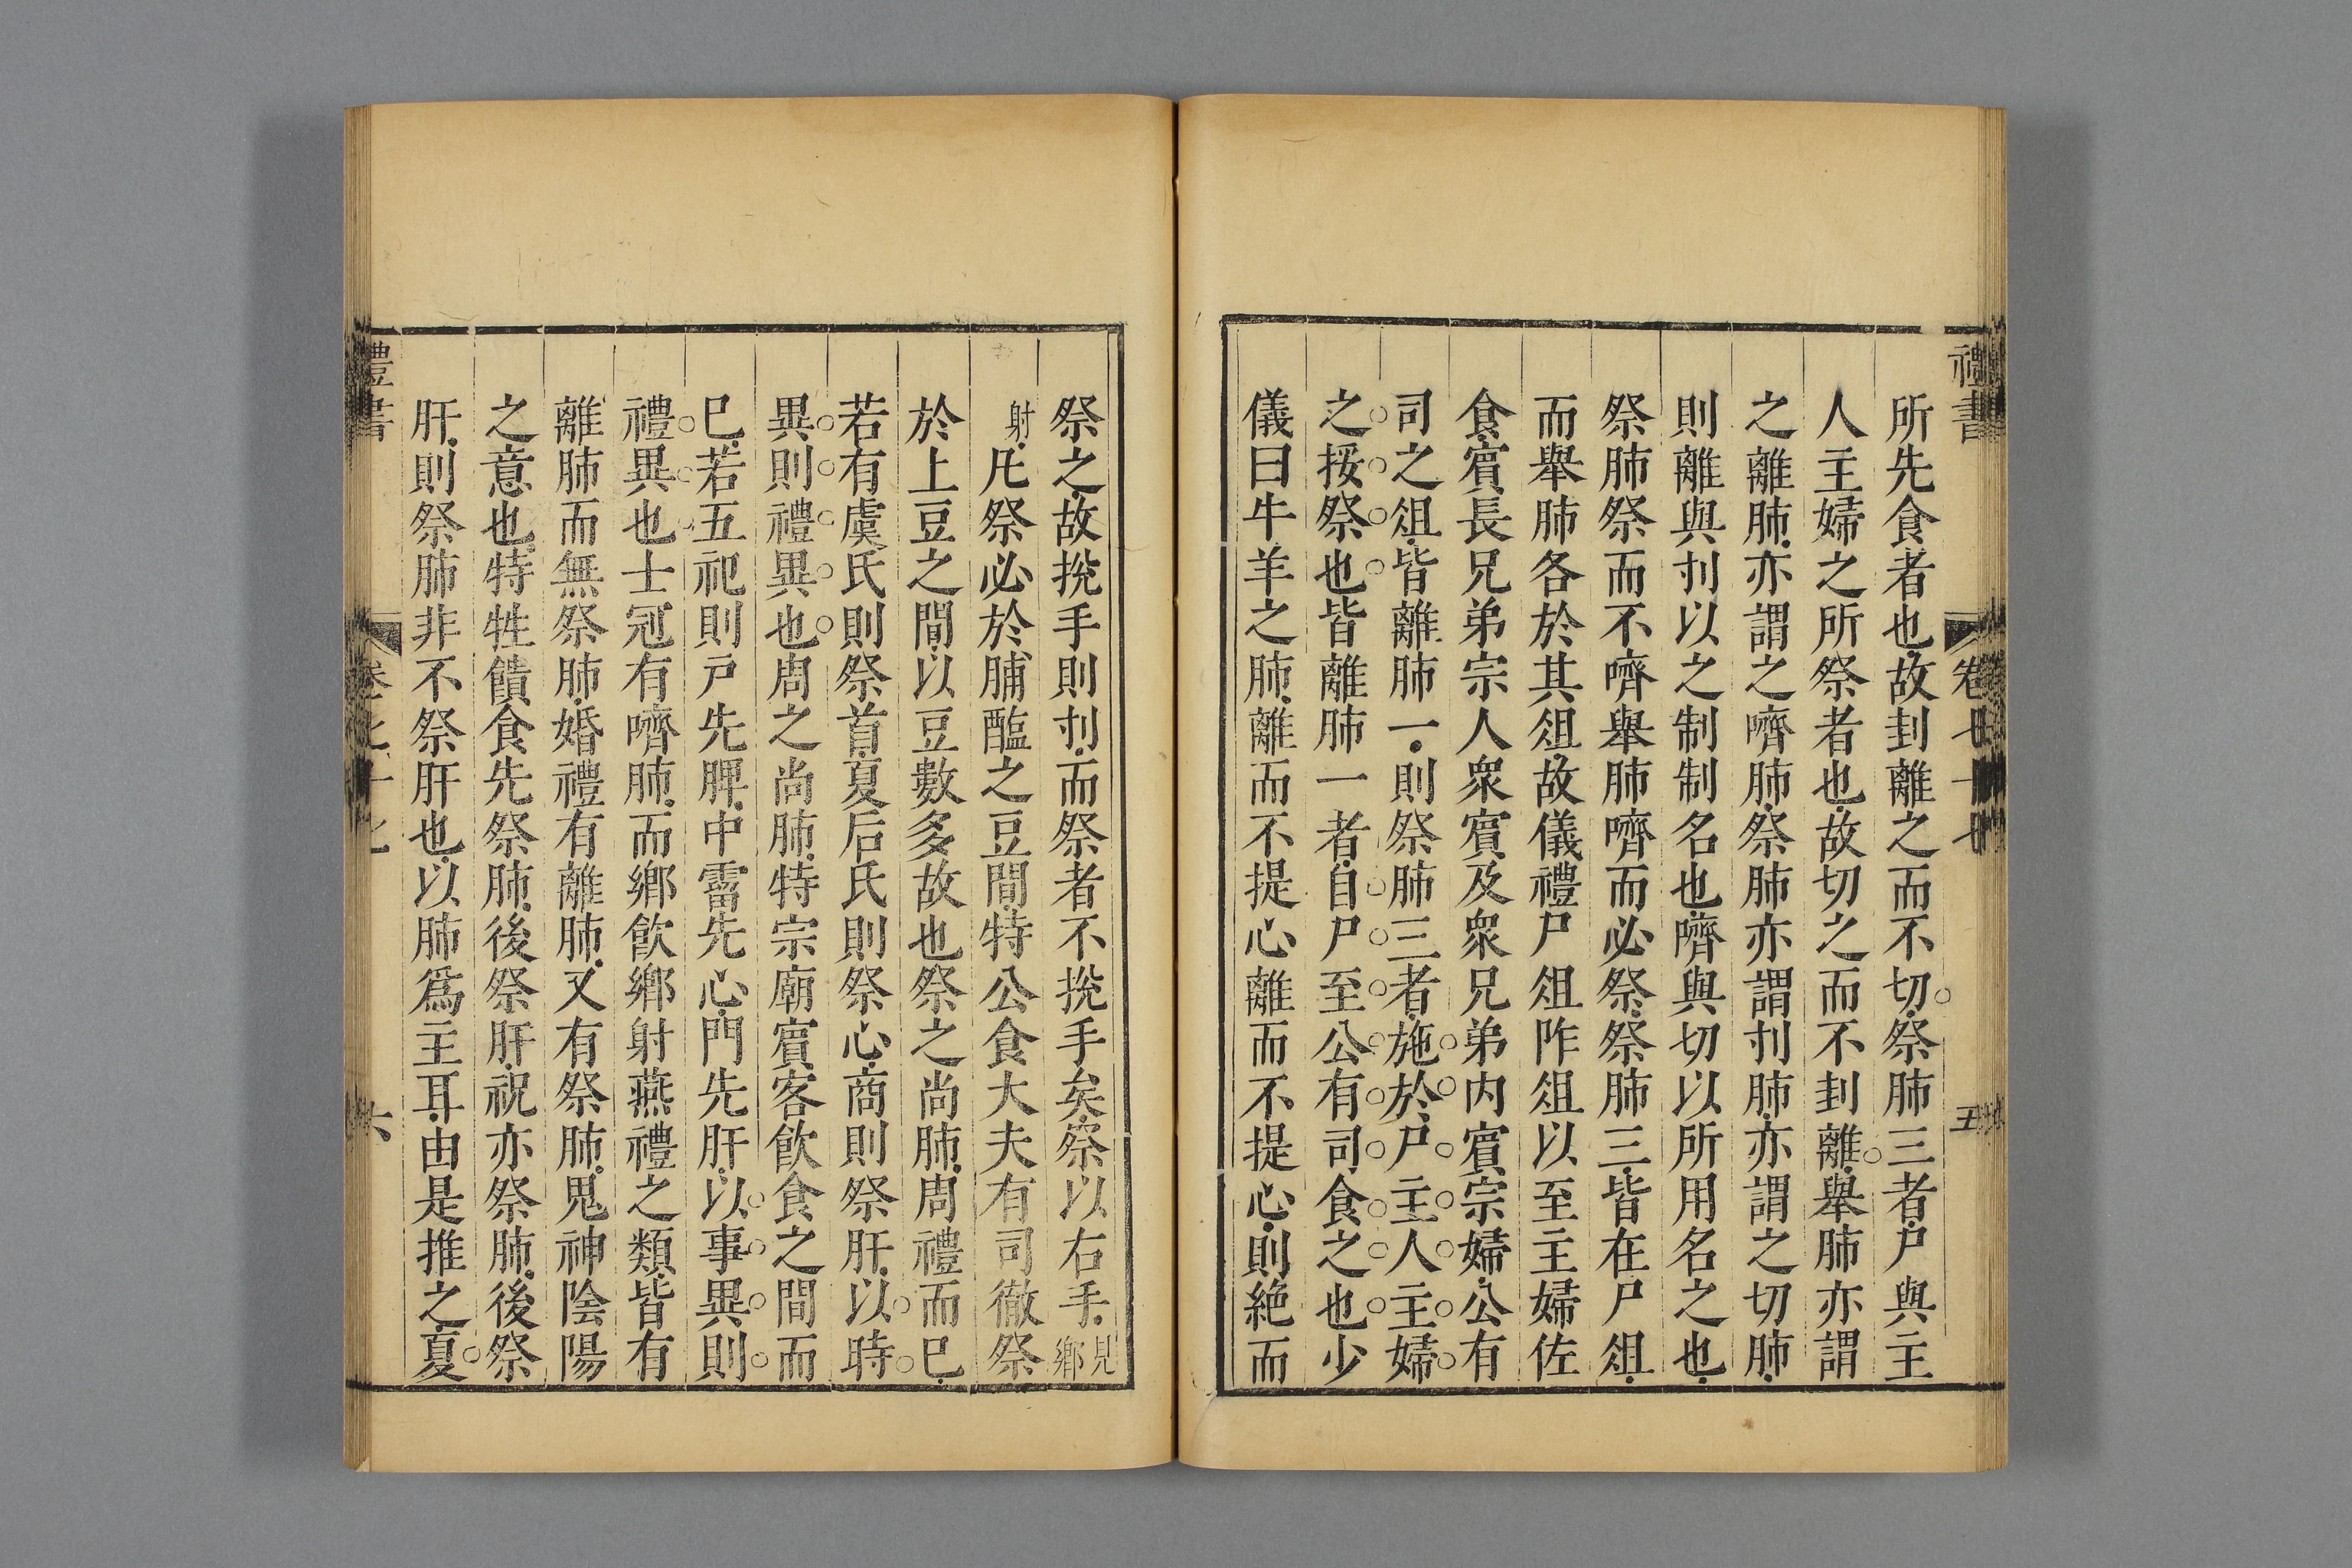 禮書 卷七十七 五
所先食者也故刲離之而不切祭肺三者尸與主
人主婦之所祭者也故切之而不刲離舉肺亦謂
之離肺亦謂之嚌肺祭肺亦謂刌肺亦謂之切肺
則離與刌以之制制名也嚌與切以所用名之也
祭肺祭而不嚌舉肺嚌而必祭祭肺三皆在尸俎
而舉肺各於其俎故儀禮尸俎阼俎以至主婦佐
食賓長兄弟宗人衆賓及衆兄弟内賓宗婦公有
司之俎皆離肺一則祭肺三者施於尸主人主婦
之挼祭也皆離肺一者自尸至公有司食之也少
儀曰牛羊之肺離而不提心離而不提心則絶而
祭之故挩手則刌而祭者不挩手矣祭以右手見鄉
射凡祭必於脯醢之豆間特公食大夫有司徹祭
於上豆之間以豆數多故也祭之尚肺周禮而已
若有虞氏則祭首夏后氏則祭心商則祭肝以時
異則禮異也周之尚肺特宗廟賓客飲食之間而
已若五祀則戸先脾中霤先心門先肝以事異則
禮異也士冠有嚌肺而鄉飲鄉射燕禮之類皆有
離肺而無祭肺婚禮有離肺又有祭肺鬼神陰陽
之意也特牲饋食先祭肺後祭肝祝亦祭肺後祭
肝則祭肺非不祭肝也以肺爲主耳由是推之夏
禮書 卷七十七 六